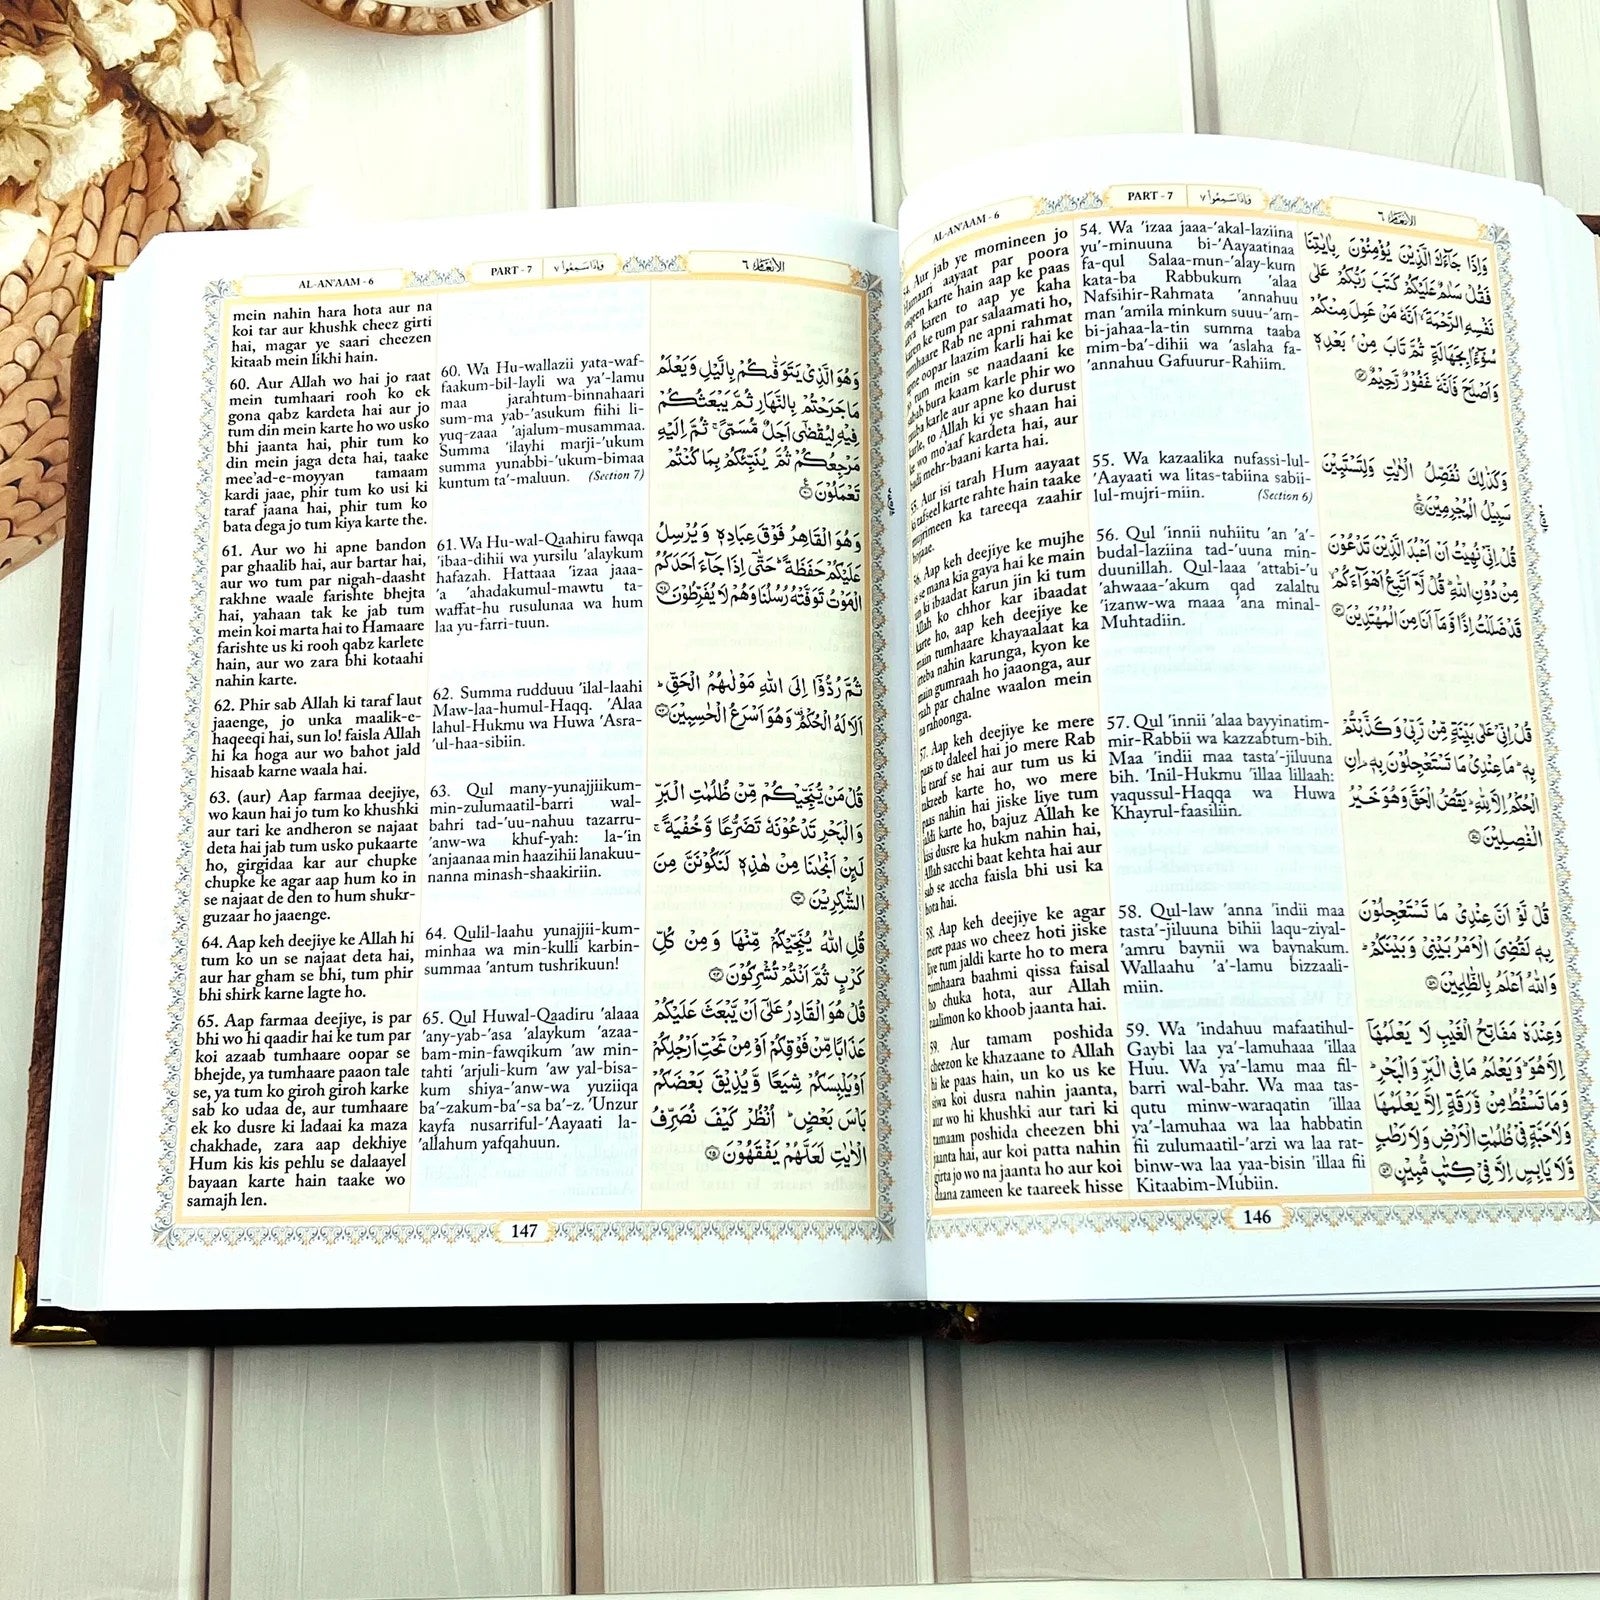 AL-AN'AAM - 6
PART - 7
وَاِذَا سَمِعُوْا ٧
الأنعام ٦
Aur jab ye momineen jo
Hamaari aayaat par poora
yaqeen karte hain aap ke paas
karen to aap ye kaha
karen ke tum par salaamati ho,
tumhaare Rab ne apni rahmat
apne oopar laazim karli hai ke
jo tum mein se naadaani ke
sabab bura kaam karle phir wo
tauba karle aur apne ko durust
karle, to Allah ki ye shaan hai
ke wo mo'aaf kardeta hai, aur
badi mehr-baani karta hai.
55. Aur isi tarah Hum aayaat
ki tafseel karte rahte hain taake
mujrimeen ka tareeqa zaahir
hojaae.
56. Aap keh deejiye ke mujhe
se mana kia gaya hai ke main
un ki ibaadat karun jin ki tum
Allah ko chhor kar ibaadat
karte ho, aap keh deejiye ke
main tumhaare khayaalaat ka
itteba nahin karunga, kyon ke
main gumraah ho jaaonga, aur
raah par chalne waalon mein
na rahoonga.
57. Aap keh deejiye ke mere
paas to daleel hai jo mere Rab
ki taraf se hai aur tum us ki
takzeeb karte ho, wo mere
paas nahin hai jiske liye tum
jaldi karte ho, bajuz Allah ke
kisi dusre ka hukm nahin hai,
Allah sacchi baat kehta hai aur
sab se accha faisla bhi usi ka
hota hai.
58. Aap keh deejiye ke agar
mere paas wo cheez hoti jiske
liye tum jaldi karte ho to mera
tumhaara baahmi qissa faisal
ho chuka hota, aur Allah
zaalimon ko khoob jaanta hai.
59. Aur tamam poshida
cheezon ke khazaane to Allah
hi ke paas hain, un ko us ke
siwa koi dusra nahin jaanta,
aur wo hi khushki aur tari ki
tamaam poshida cheezen bhi
jaanta hai, aur koi patta nahin
girta jo wo na jaanta ho aur koi
daana zameen ke taareek hisse
54. Wa 'izaa jaaa-'akal-laziina
yu'-minuuna bi-'Aayaatinaa
fa-qul Salaa-mun-'alay-kum
kata-ba Rabbukum 'alaa
Nafsihir-Rahmata 'annahuu
man 'amila minkum suuu-'am-
bi-jahaa-la-tin summa taaba
mim-ba'-dihii wa 'aslaha fa-
'annahuu Gafuurur-Rahiim.
55. Wa kazaalika nufassi-lul-
'Aayaati wa litas-tabiina sabii-
lul-mujri-miin. (Section 6)
56. Qul 'innii nuhiitu 'an 'a'-
budal-laziina tad-'uuna min-
duunillah. Qul-laaa 'attabi-'u
'ahwaaa-'akum qad zalaltu
'izanw-wa maaa 'ana minal-
Muhtadiin.
57. Qul 'innii 'alaa bayyinatim-
mir-Rabbii wa kazzabtum-bih.
Maa 'indii maa tasta'-jiluuna
bih. 'Inil-Hukmu 'illaa lillaah:
yaqussul-Haqqa wa Huwa
Khayrul-faasiliin.
58. Qul-law 'anna 'indii maa
tasta'-jiluuna bihii laqu-ziyal-
'amru baynii wa baynakum.
Wallaahu 'a'-lamu bizzaali-
miin.
59. Wa 'indahuu mafaatihul-
Gaybi laa ya'-lamuhaaa 'illaa
Huu. Wa ya'-lamu maa fil-
barri wal-bahr. Wa maa tas-
qutu minw-waraqatin 'illaa
ya'-lamuhaa wa laa habbatin
fii zulumaatil-'arzi wa laa rat-
binw-wa laa yaa-bisin 'illaa fii
Kitaabim-Mubiin.
وَاِذَا جَآءَكَ الَّذِيْنَ يُؤْمِنُوْنَ بِاٰيٰتِنَا
فَقُلْ سَلٰمٌ عَلَيْكُمْ كَتَبَ رَبُّكُمْ عَلٰى
نَفْسِهِ الرَّحْمَةَ ۙ اَنَّهٗ مَنْ عَمِلَ مِنْكُمْ
سُوْٓءًۢا بِجَهَالَةٍ ثُمَّ تَابَ مِنْۢ بَعْدِهٖ
وَاَصْلَحَ فَاَنَّهٗ غَفُوْرٌ رَّحِيْمٌ ۝٥٤
وَكَذٰلِكَ نُفَصِّلُ الْاٰيٰتِ وَلِتَسْتَبِيْنَ
سَبِيْلُ الْمُجْرِمِيْنَ ۝٥٥
قُلْ اِنِّيْ نُهِيْتُ اَنْ اَعْبُدَ الَّذِيْنَ تَدْعُوْنَ
مِنْ دُوْنِ اللّٰهِ ۭ قُلْ لَّآ اَتَّبِعُ اَهْوَآءَكُمْ ۙ
قَدْ ضَلَلْتُ اِذًا وَّمَآ اَنَا مِنَ الْمُهْتَدِيْنَ ۝٥٦
قُلْ اِنِّيْ عَلٰى بَيِّنَةٍ مِّنْ رَّبِّيْ وَكَذَّبْتُمْ
بِهٖ ۭ مَا عِنْدِيْ مَا تَسْتَعْجِلُوْنَ بِهٖ ۭ اِنِ
الْحُكْمُ اِلَّا لِلّٰهِ ۭ يَقُصُّ الْحَقَّ وَهُوَ خَيْرُ
الْفٰصِلِيْنَ ۝٥٧
قُلْ لَّوْ اَنَّ عِنْدِيْ مَا تَسْتَعْجِلُوْنَ
بِهٖ لَقُضِيَ الْاَمْرُ بَيْنِيْ وَبَيْنَكُمْ ۭ
وَاللّٰهُ اَعْلَمُ بِالظّٰلِمِيْنَ ۝٥٨
وَعِنْدَهٗ مَفَاتِحُ الْغَيْبِ لَا يَعْلَمُهَآ
اِلَّا هُوَ ۭ وَيَعْلَمُ مَا فِي الْبَرِّ وَالْبَحْرِ ۭ
وَمَا تَسْقُطُ مِنْ وَّرَقَةٍ اِلَّا يَعْلَمُهَا
وَلَا حَبَّةٍ فِيْ ظُلُمٰتِ الْاَرْضِ وَلَا رَطْبٍ
وَّلَا يَابِسٍ اِلَّا فِيْ كِتٰبٍ مُّبِيْنٍ ۝٥٩
146
AL-AN'AAM - 6
PART - 7
وَاِذَا سَمِعُوْا ٧
الأنعام ٦
mein nahin hara hota aur na
koi tar aur khushk cheez girti
hai, magar ye saari cheezen
kitaab mein likhi hain.
60. Aur Allah wo hai jo raat
mein tumhari rooh ko ek
gona qabz kardeta hai aur jo
tum din mein karte ho wo usko
bhi jaanta hai, phir tum ko
din mein jaga deta hai, taake
mee'ad-e-moyyan tamaam
kardi jaae, phir tum ko usi ki
taraf jaana hai, phir tum ko
bata dega jo tum kiya karte the.
61. Aur wo hi apne bandon
par ghaalib hai, aur bartar hai,
aur wo tum par nigah-daasht
rakhne waale farishte bhejta
hai, yahaan tak ke jab tum
mein koi marta hai to Hamaare
farishte us ki rooh qabz karlete
hain, aur wo zara bhi kotaahi
nahin karte.
62. Phir sab Allah ki taraf laut
jaaenge, jo unka maalik-e-
haqeeqi hai, sun lo! faisla Allah
hi ka hoga aur wo bahot jald
hisaab karne waala hai.
63. (aur) Aap farmaa deejiye,
wo kaun hai jo tum ko khushki
aur tari ke andheron se najaat
deta hai jab tum usko pukaarte
ho, girgidaa kar aur chupke
chupke ke agar aap hum ko in
se najaat de den to hum shukr-
guzaar ho jaaenge.
64. Aap keh deejiye ke Allah hi
tum ko un se najaat deta hai,
aur har gham se bhi, tum phir
bhi shirk karne lagte ho.
65. Aap farmaa deejiye, is par
bhi wo hi qaadir hai ke tum par
koi azaab tumhaare oopar se
bhejde, ya tumhare paaon tale
se, ya tum ko giroh giroh karke
sab ko udaa de, aur tumhaare
ek ko dusre ki ladaai ka maza
chakhade, zara aap dekhiye
Hum kis kis pehlu se dalaayel
bayaan karte hain taake wo
samajh len.
60. Wa Hu-wallazii yata-waf-
faakum-bil-layli wa ya'-lamu
maa jarahtum-binnahaari
sum-ma yab-'asukum fiihi li-
yuq-zaaa 'ajalum-musammaa.
Summa 'ilayhi marji-'ukum
summa yunabbi-'ukum-bimaa
kuntum ta'-maluun. (Section 7)
61. Wa Hu-wal-Qaahiru fawqa
'ibaa-dihii wa yursilu 'alaykum
hafazah. Hattaaa 'izaa jaaa-
'a 'ahadakumul-mawtu ta-
waffat-hu rusulunaa wa hum
laa yu-farri-tuun.
62. Summa rudduuu 'ilal-laahi
Maw-laa-humul-Haqq. 'Alaa
lahul-Hukmu wa Huwa 'Asra-
'ul-haa-sibiin.
63. Qul many-yunajjiikum-
min-zulumaatil-barri wal-
bahri tad-'uu-nahuu tazarru-
'anw-wa khuf-yah: la-'in
'anjaanaa min haazihii lanakuu-
nanna minash-shaakiriin.
64. Qulil-laahu yunajjii-kum-
minhaa wa min-kulli karbin-
summaa 'antum tushrikuun!
65. Qul Huwal-Qaadiru 'alaaa
'any-yab-'asa 'alaykum 'azaa-
bam-min-fawqikum 'aw min-
tahti 'arjuli-kum 'aw yal-bisa-
kum shiya-'anw-wa yuziiqa
ba'-zakum-ba'-sa ba'-z. 'Unzur
kayfa nusarriful-'Aayaati la-
'allahum yafqahuun.
وَهُوَ الَّذِيْ يَتَوَفّٰىكُمْ بِالَّيْلِ وَيَعْلَمُ
مَا جَرَحْتُمْ بِالنَّهَارِ ثُمَّ يَبْعَثُكُمْ
فِيْهِ لِيُقْضٰٓى اَجَلٌ مُّسَمًّى ۚ ثُمَّ اِلَيْهِ
مَرْجِعُكُمْ ثُمَّ يُنَبِّئُكُمْ بِمَا كُنْتُمْ
تَعْمَلُوْنَ ۝٦٠
وَهُوَ الْقَاهِرُ فَوْقَ عِبَادِهٖ وَيُرْسِلُ
عَلَيْكُمْ حَفَظَةً ۭ حَتّٰٓى اِذَا جَآءَ اَحَدَكُمُ
الْمَوْتُ تَوَفَّتْهُ رُسُلُنَا وَهُمْ لَا يُفَرِّطُوْنَ ۝٦١
ثُمَّ رُدُّوْٓا اِلَى اللّٰهِ مَوْلٰىهُمُ الْحَقِّ ۭ
اَلَا لَهُ الْحُكْمُ ۣ وَهُوَ اَسْرَعُ الْحٰسِبِيْنَ ۝٦٢
قُلْ مَنْ يُّنَجِّيْكُمْ مِّنْ ظُلُمٰتِ الْبَرِّ
وَالْبَحْرِ تَدْعُوْنَهٗ تَضَرُّعًا وَّخُفْيَةً ۚ
لَئِنْ اَنْجٰىنَا مِنْ هٰذِهٖ لَنَكُوْنَنَّ مِنَ
الشّٰكِرِيْنَ ۝٦٣
قُلِ اللّٰهُ يُنَجِّيْكُمْ مِّنْهَا وَمِنْ كُلِّ
كَرْبٍ ثُمَّ اَنْتُمْ تُشْرِكُوْنَ ۝٦٤
قُلْ هُوَ الْقَادِرُ عَلٰٓى اَنْ يَّبْعَثَ عَلَيْكُمْ
عَذَابًا مِّنْ فَوْقِكُمْ اَوْ مِنْ تَحْتِ اَرْجُلِكُمْ
اَوْ يَلْبِسَكُمْ شِيَعًا وَّيُذِيْقَ بَعْضَكُمْ
بَاْسَ بَعْضٍ ۭ اُنْظُرْ كَيْفَ نُصَرِّفُ
الْاٰيٰتِ لَعَلَّهُمْ يَفْقَهُوْنَ ۝٦٥
147